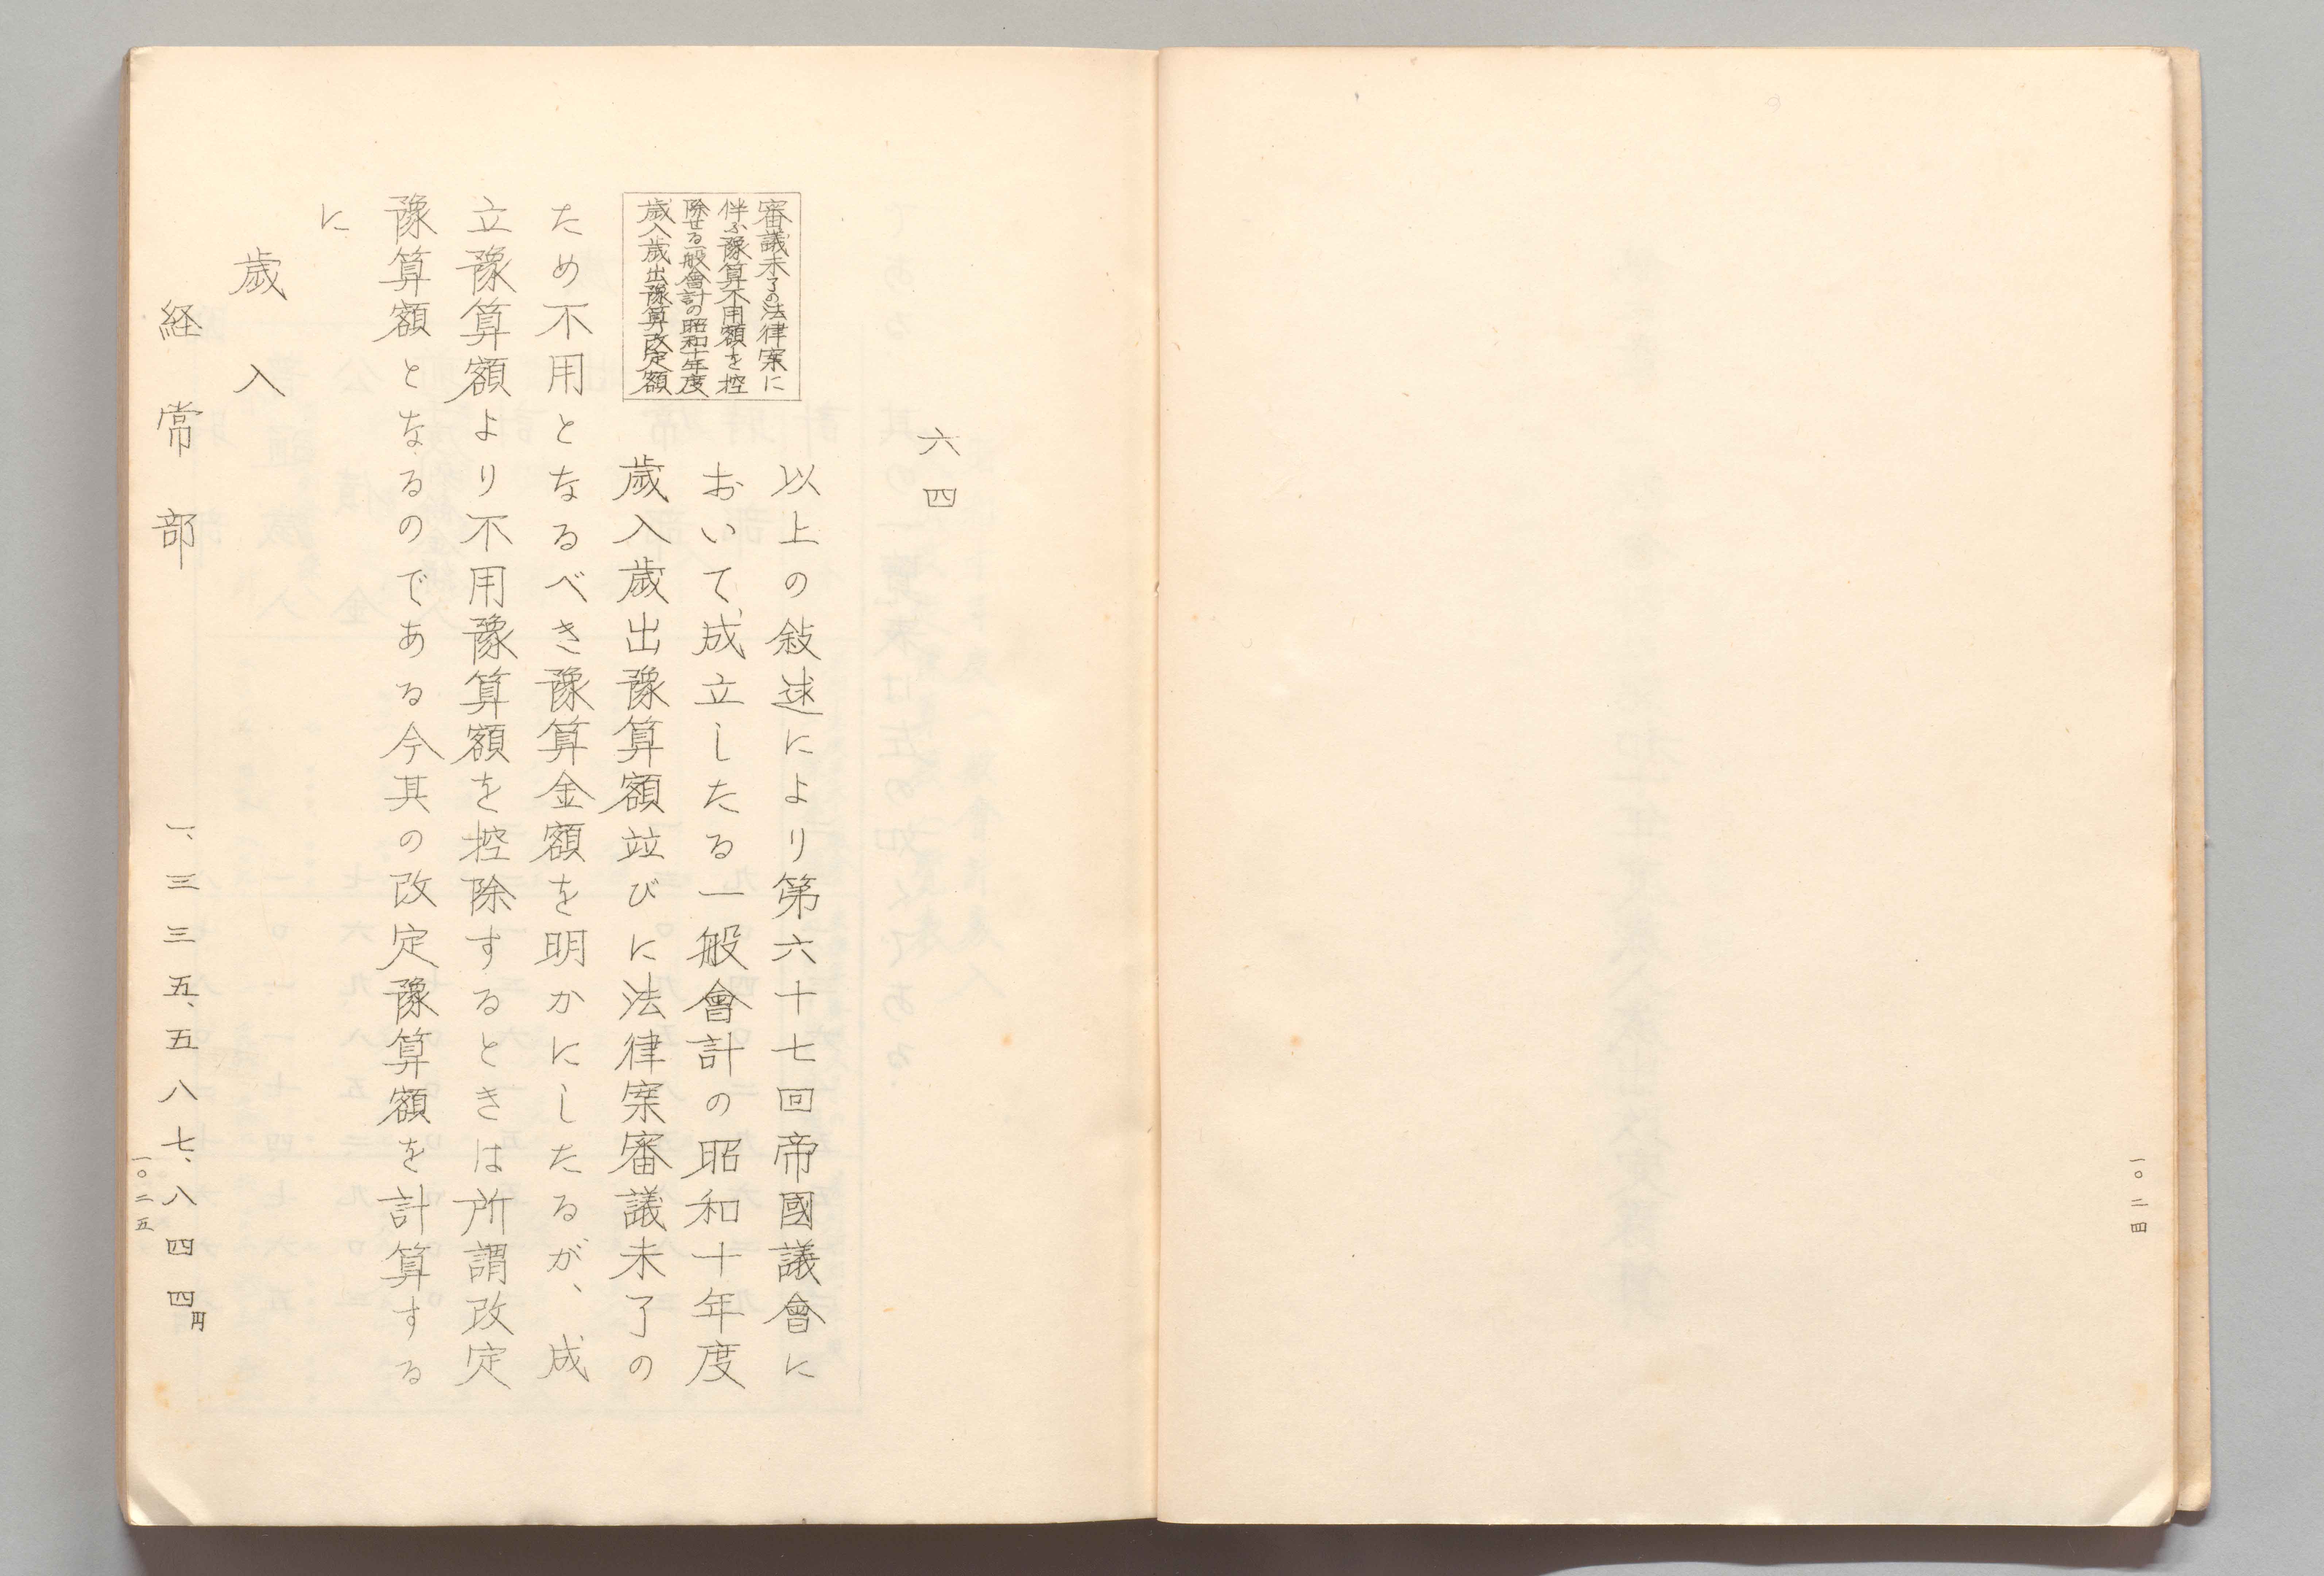 一〇二四
六四
審議未了の法律案に
伴ふ豫算不用額を控
除せる一般會計の昭和十年度
歳入歳出豫算改定額
以上の敍述により第六十七回帝國議會に
おいて、成立したる一般會計の昭和十年度
歳入歳出豫算額竝びに法律案審議未了の
ため不用となるべき豫算金額を明かにしたるが、成
立豫算額より不用豫算額を控除するときは所謂改定
豫算額となるのである今其の改定豫算額を計算する
に
歳入
経常部　一、三三五、五八七、八四四円
一〇二五